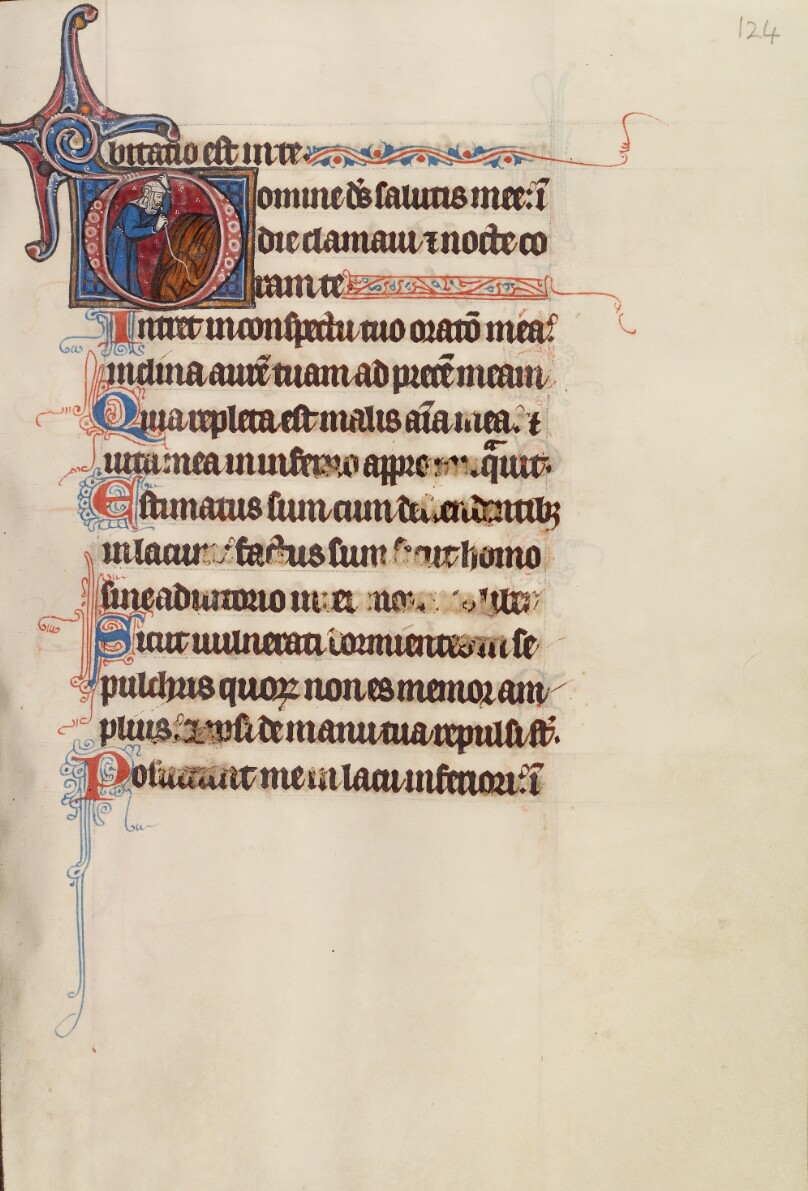 124
bitatio est in te.
Domine ds̄ salutis mee: ī
die clamaui ⁊ nocte co
ram te
Intret in conspectu tuo oratō mea:
inclina aurē tuam ad precē meam
Quia repleta est malis aīa mea: ⁊
uita mea in inferno
Estimatus sum cum
in lacum factus sum sicut homo
sine adiutorio
Sicut uulnerati dormientes in se
pulchris quoꝝ non es memor am
plius: ⁊ ipsi de manu tua repulsi st̄.
Posuerunt me in lacu inferiori: ī